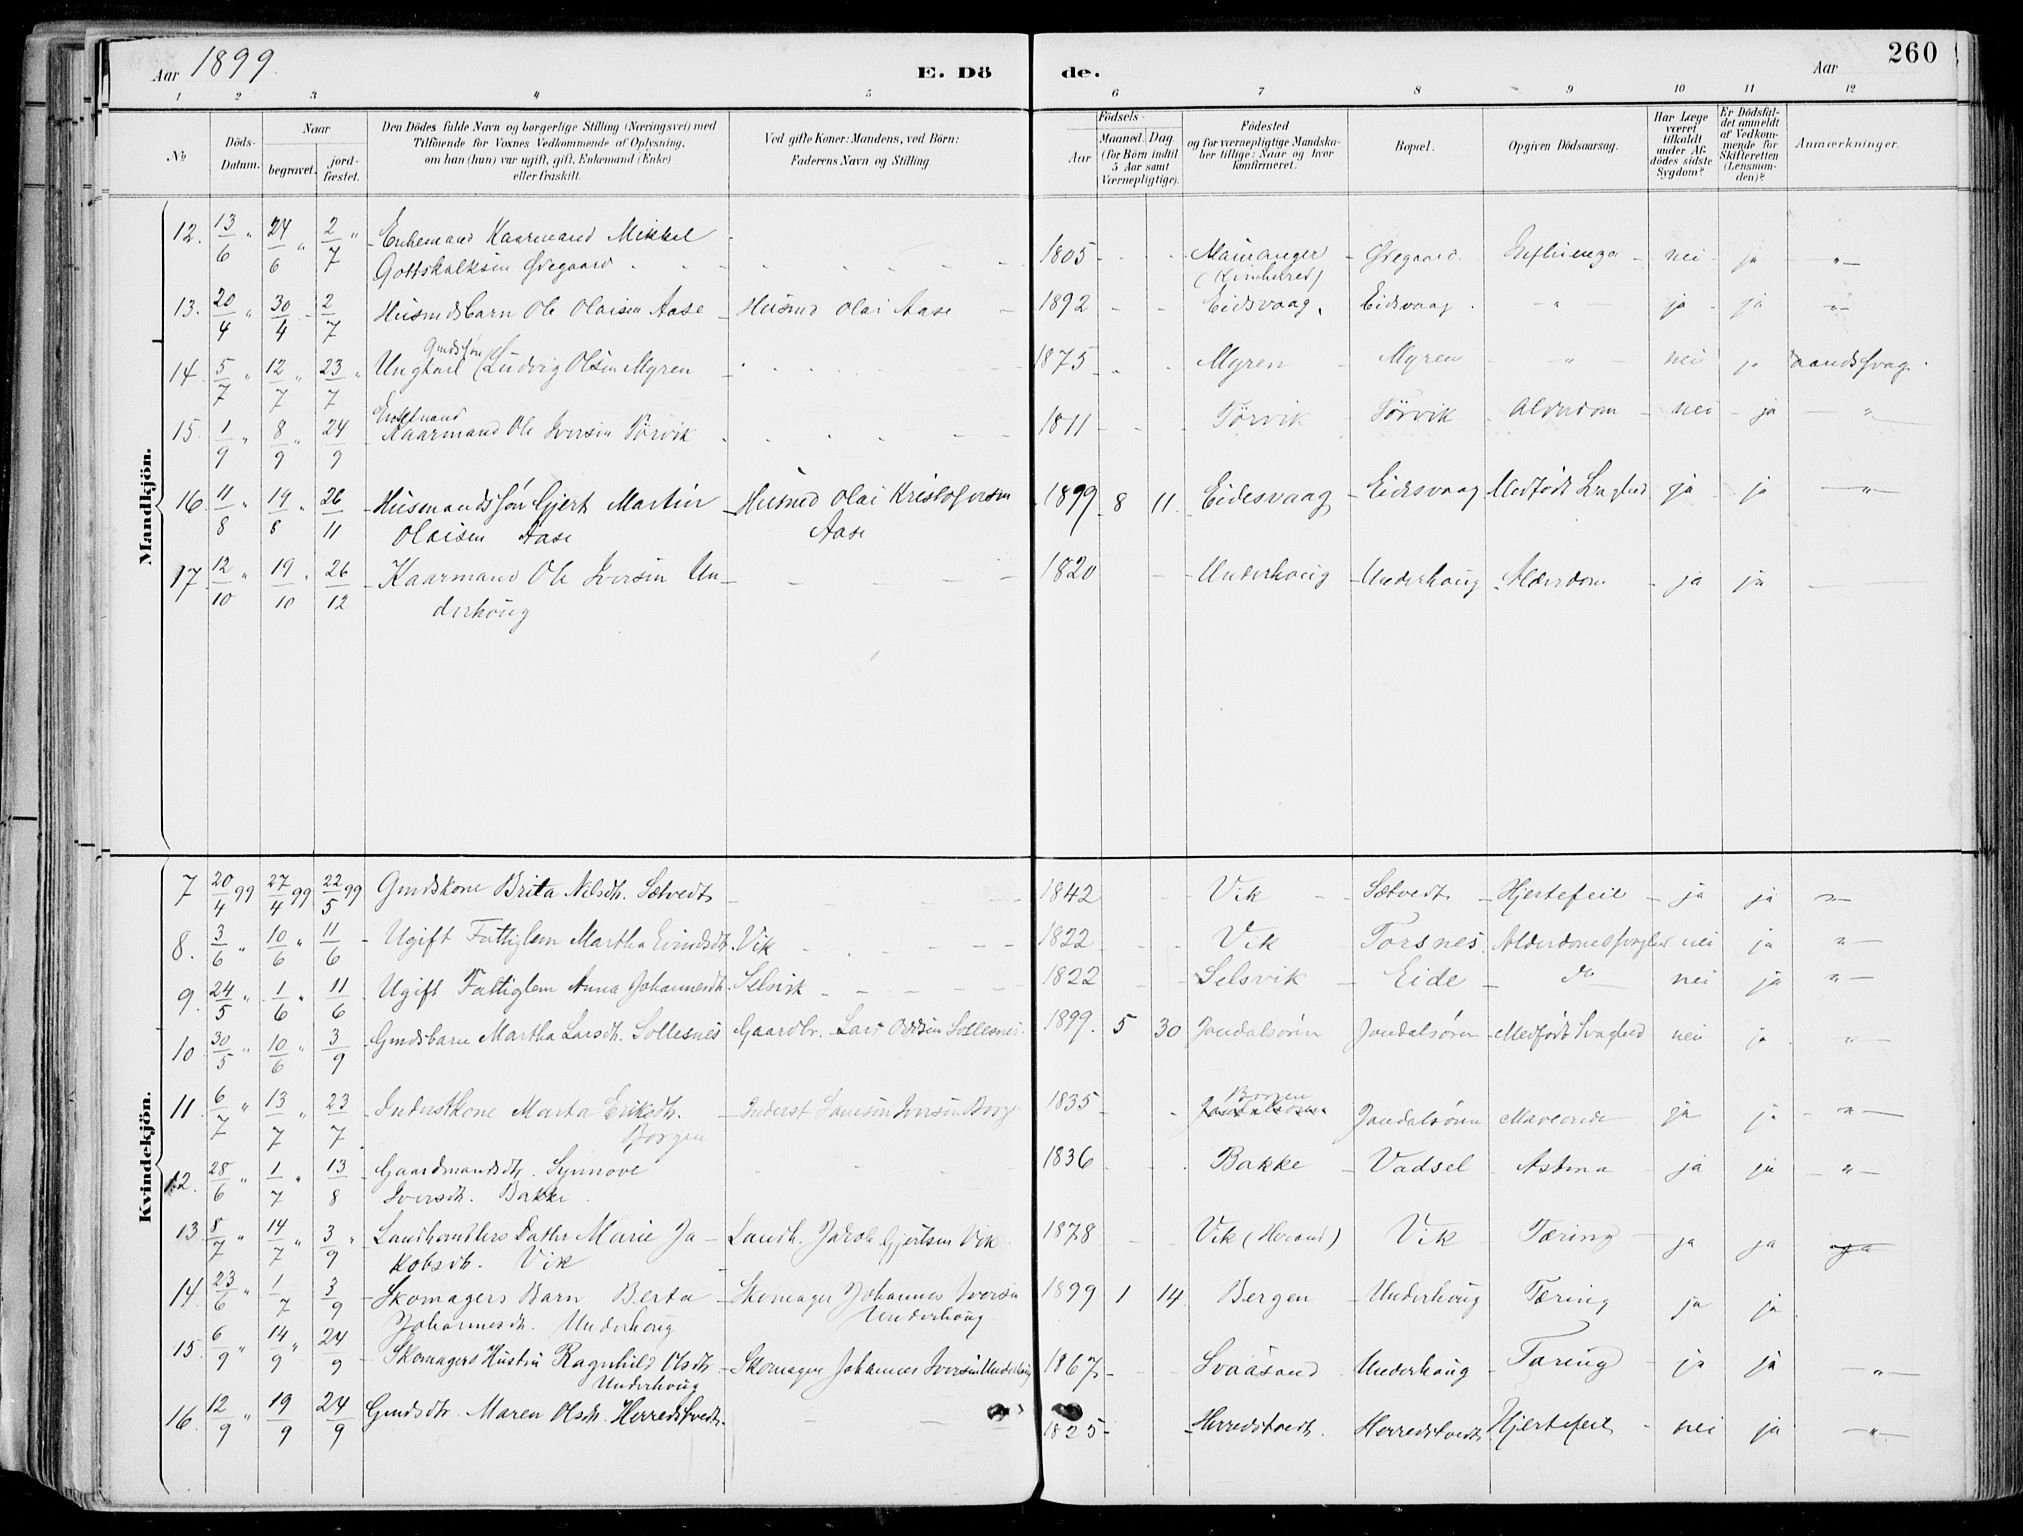 Aar 1899.
E. Dö
de.
Aar
260
1 2 3 4 5 6 7 8 9 10 11 12
No
Döds-Datum.
Naar
begravet.
jord-fæstet.
Den Dödes fulde Navn og borgerlige Stilling (Næringsvei) med
Tilföiende for Voxnes Vedkommende af Oplysning,
om han (hun) var ugift, gift, Enkemand (Enke)
eller fraskilt.
Ved gifte Koner: Mandens, ved Börn:
Faderens Navn og Stilling.
Födsels-
Aar
Maaned. Dag.
(for Börn indtil
5 Aar samt
Værnepligtige).
Födested
og for værnepligtige Mandska-
ber tillige: Naar og hvor
konfirmeret.
Bopæl.
Opgiven Dödsaarsag.
Har Læge
været
tilkaldt
under Af-
dödes sidste
Sygdom?
Er Dödsfal-
det anmeldt
af Vedkom-
mende for
Skifteretten
(Lensman-
den)?
Anmærkninger.
Mandkjön.
12. 13/6 " 24/6 " 2/7 " Enkemand Kaarmand Mikkel
Gottskalksen Ødegaard 1805 Mauranger (Kvinhered) Ødegaard. Influenza nei ja "
13. 20/4 30/4 2/7 Husmdsbarn Ole Olaisen Aase Husmd Olai Aase 1892 Eidsvaag. Eidsvaag. " ja ja "
14. 5/7 " 12/7 " 23/7 " Ungkarl (Gmdssøn) Ludvig Olsen Myren 1875 Myren Myren " nei ja aandssvag.
15. 1/9 " 8/9 " 24/9 Enkemand
Kaarmand Ole Iversen Tørvik 1811 Tørvik Tørvik Alderdom nei ja "
16. 11/8 " 19/8 " 26/11 Husmandssøn Gjert Martin Husmd Olai Kristofersen 1899 8 11. Eidesvaag Eidesvaag Medfødt Svaghed ja ja "
Olaisen Aase Aase
17. 12/10 " 19/10 " 26/12 Kaarmand Ole Iversen Un-
derhoug 1820 Underhoug Underhoug Alderdom ja ja
Kvindekjön.
7 20/4 99 27/4 99 22/5 99 Gmdskone Brita Nilsdtr. Sætvedt 1842 Vik Sætvedt Hjertefeil ja ja "
8. 3/6 " 10/6 " 11/6 Ugift Fattiglem Martha Eivindsdtr. Vik 1822 Vik Torsnes Alderdomssvaghed nei ja "
9. 24/5 " 1/6 " 11/6 Ugift Fattiglem Anna Johannesdtr. Selsvik 1822 Selsvik Eide do nei ja "
10. 30/5 " 10/6 " 3/9 Gmdsbarn Martha Larsdtr. Sollesnes Gaardbr. Lars Oddsen Sollesnes 1899. 5 30 Jondalsøren Jondalsøren Medfødt Svaghed nei ja "
11. 6/7 " 13/7 " 23/7 Inderstkone Marta Eriksdtr. Borgen Inderst Samson Iversen Borgen 1835 Borgen Jondalsøren Jondalsøren Maveonde ja ja "
12. 28/6 " 1/7 " 13/8 Gaardmandsdtr. Synnove
Iversdtr. Bakke 1836 Bakke Vadsel Astma ja ja "
13. 8/7 " 14/7 " 3/9 " Landhandlers Datter Marie Ja- Landh. Jakob Gjertsen Vik 1878 Vik (Herand) Vik Tæring ja ja
kobsdtr. Vik
14. 23/6 " 1/7 3/9 Skomagers Barn Berta Skomager Johannes Iversen 1899 1 14 Bergen Underhoug Tæring ja ja
Johannesdtr. Underhoug Underhoug
15. 6/9 " 14/9 " 24/9 Skomagers Hustru Ragnhild Olsdtr. Skomager Johannes Iversen Underhoug 1867 Svaasand Underhoug Tæring ja ja "
Underhoug
16. 12/9 " 19/9 24/9 Gmdsdtr. Maren Olsdtr. Herredstvedt. 1825 Herredstvedt. Herredstvedt Hjertefeil nei ja "